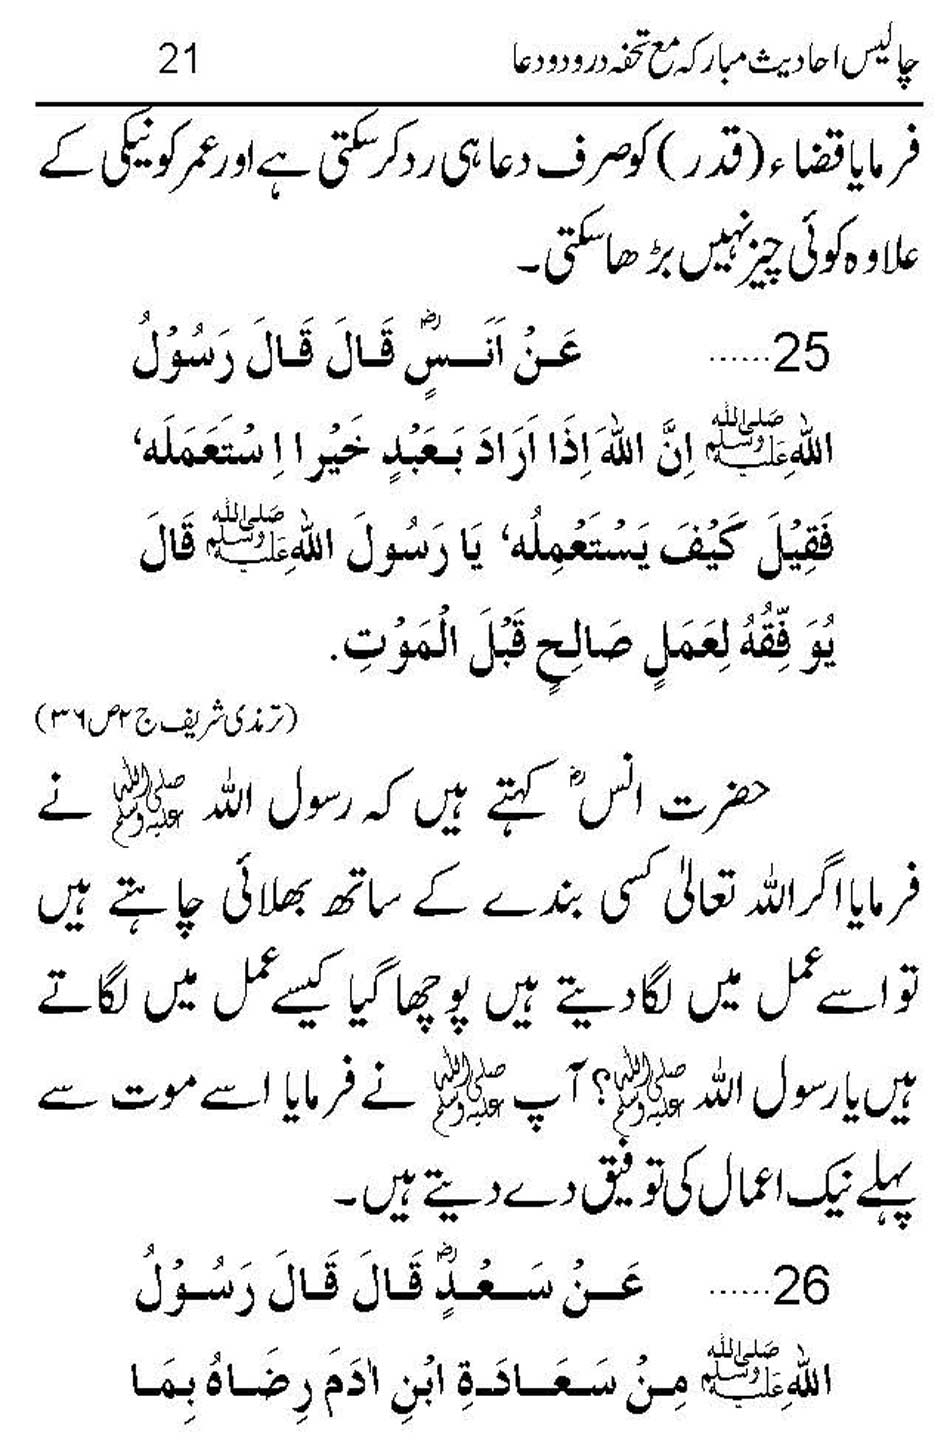 چالیس احادیث مبارکہ مع تحفہ درود و دعا 21
فرمایا قضاء (قدر) کو صرف دعا ہی رد کر سکتی ہے اور عمر کو نیکی کے
علاوہ کوئی چیز نہیں بڑھا سکتی۔
25...... عَنْ اَنَسٍؓ قَالَ قَالَ رَسُوْلُ
اللّٰهِ ﷺ اِنَّ اللّٰهَ اِذَا اَرَادَ بَعَبْدٍ خَيْرا اِسْتَعَمَلَه‘
فَقِيْلَ كَيْفَ يَسْتَعْمِلُه‘ يَا رَسُولَ اللّٰهِ ﷺ قَالَ
يُوَفِّقُهُ لِعَمَلٍ صَالِحٍ قَبْلَ الْمَوْتِ.
(ترمذی شریف ج ۲ ص ۳۶)
حضرت انسؓ کہتے ہیں کہ رسول اللہ ﷺ نے
فرمایا اگر اللہ تعالیٰ کسی بندے کے ساتھ بھلائی چاہتے ہیں
تو اسے عمل میں لگا دیتے ہیں پوچھا گیا کیسے عمل میں لگاتے
ہیں یا رسول اللہ ﷺ؟ آپ ﷺ نے فرمایا اسے موت سے
پہلے نیک اعمال کی توفیق دے دیتے ہیں۔
26...... عَنْ سَعْدٍؓ قَالَ قَالَ رَسُوْلُ
اللّٰهِ ﷺ مِنْ سَعَادَةِ ابْنِ اٰدَمَ رِضَاهُ بِمَا